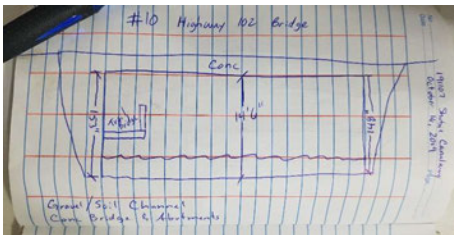 #10 Highway 102 Bridge
Conc
151"
14'6"
148"
Gravel/Soil Channel
Conc Bridge & Abutments
October 16, 2019